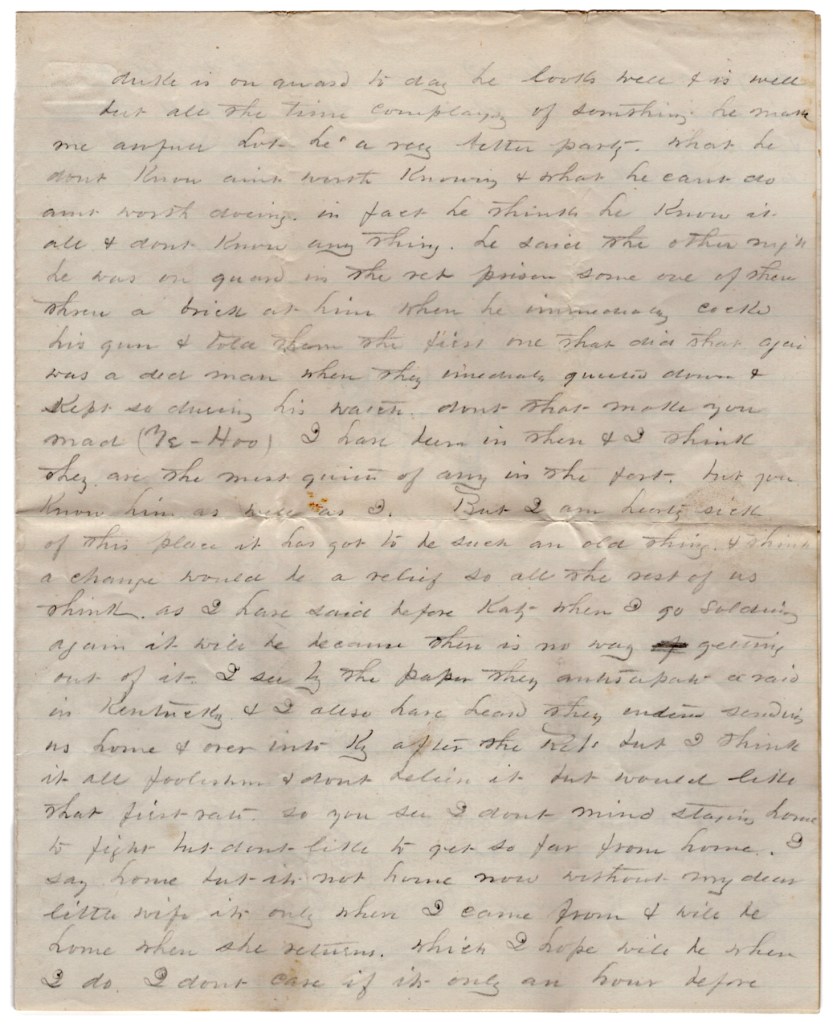 duke is on guard to day he looks well & is well
but all the time complayng of something he make
me awfull hot he a very better party. what he
dont Know aint worth Knowing & what he cant do
aint worth doeing. in fact he thinks he Know it
all & dont Know any thing. he said the other nigh
he was on guard in the reb prison some one of them
threw a brick at him when he immediatly cocke
his gun & told them the first one that did that agai
was a ded man when they imediatly quieted down &
Kept so during his watch. dont that make you
mad (Ye-Hoo) I have been in there & I think
they are the most quiet of any in the fort. but you
Know him as well as I. But I am hearty sick
of this place it has got to be such an old thing. & think
a change would be a relief so all the rest of us
think. as I have said before Katy when I go Soldiering
again it will be because there is no way getting
out of it. I see by the paper they antisapate a raid
in Kentucky & I allso have heard they sending
us home & over into Ky after the Rebs but I think
it all foolishn & dont beleive it but would like
that first rate. so you see I dont mind staying home
to fight but dont like to get so far from home. I
say home but its not home now without my dear
little wife its only where I came from & will be
home when she returns. which I hope will be when
I do. I dont care if its only an hour before